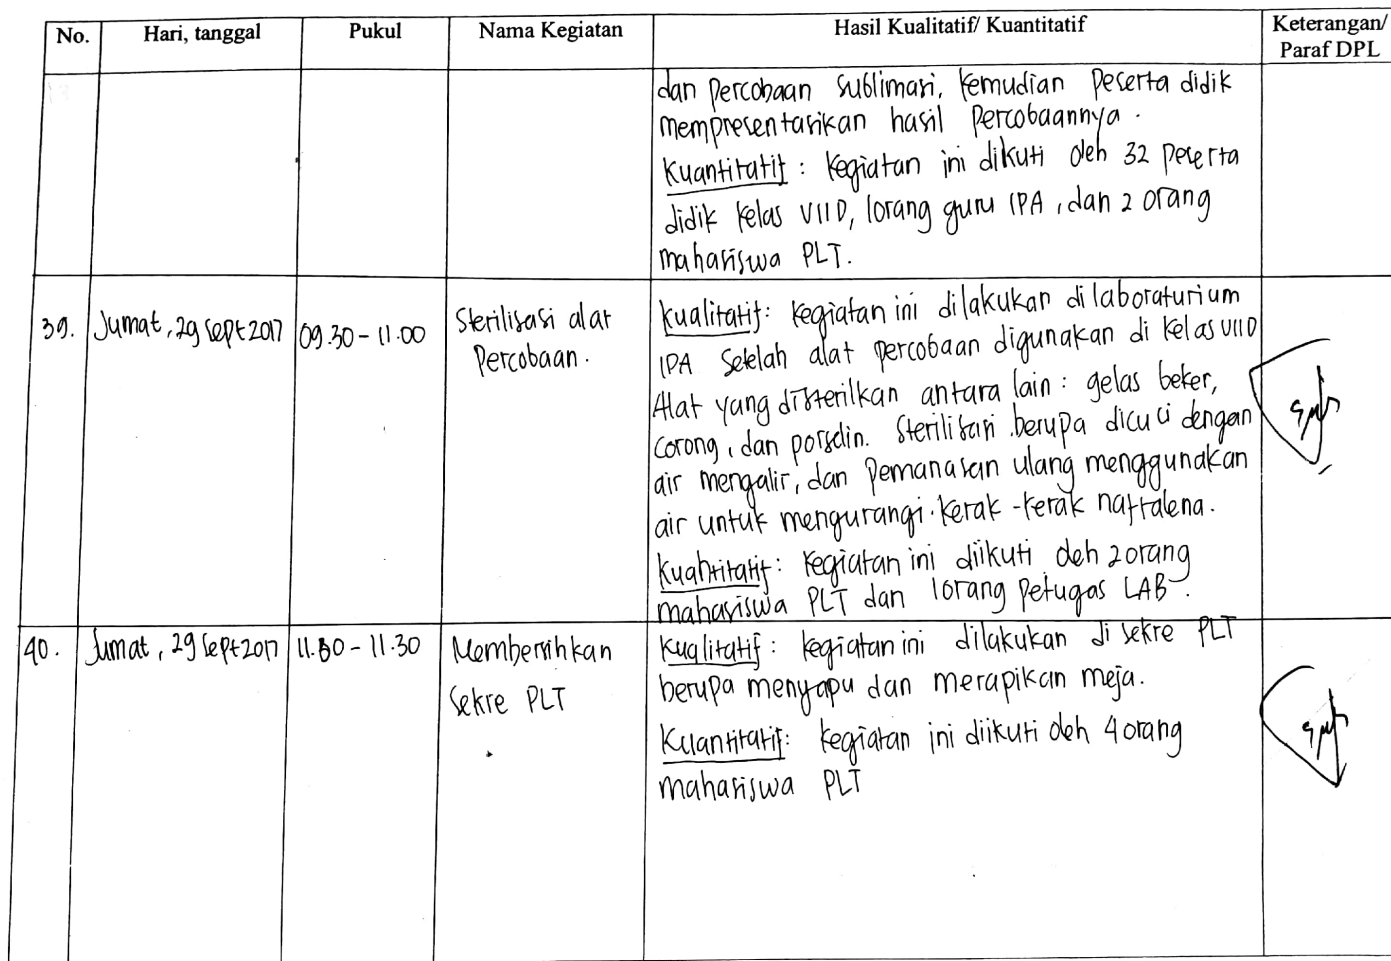 No. Hari, tanggal Pukul Nama Kegiatan Hasil Kualitatif/ Kuantitatif Keterangan/
Paraf DPL
dan percobaan sublimasi, kemudian peserta didik
mempresentasikan hasil percobaannya.
Kuantitatif : kegiatan ini dikuti oleh 32 peserta
didik kelas VIID, 1orang guru IPA, dan 2 orang
mahasiswa PLT.
39. Jumat, 29 Sept 2017 09.30 - 11.00 Sterilisasi alat
Percobaan.
Kualitatif: kegiatan ini dilakukan di laboraturium
IPA setelah alat percobaan digunakan di kelas VIID
Alat yang disterilkan antara lain : gelas beker,
corong, dan porselin. Sterilisasi berupa dicuci dengan
air mengalir, dan pemanasan ulang menggunakan
air untuk mengurangi kerak-kerak naftalena.
Kuantitatif: kegiatan ini diikuti oleh 2orang
mahasiswa PLT dan 1orang petugas LAB.
40. Jumat, 29 Sept 2017 - 11.30 Membersihkan
Sekre PLT
Kualitatif : kegiatan ini dilakukan di sekre PLT
berupa menyapu dan merapikan meja.
Kuantitatif: kegiatan ini diikuti oleh 4 orang
mahasiswa PLT